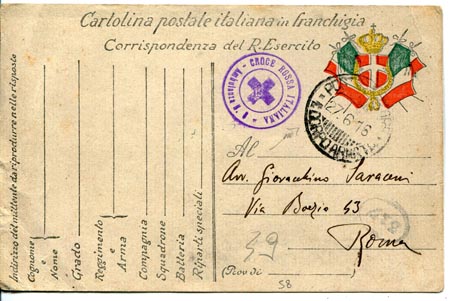 Cartolina postale italiana in franchigia
Corrispondenza del R. Esercito
CROCE ROSSA ITALIANA
Ambulanza N. 6
27.6.16
Al
Avv. Giovacchino Saraceni
Via Boezio 43
Roma
(Prov. di
39
58
Indirizzo del mittente da riprodurre nelle risposte
Cognome e Nome
Grado
Reggimento e Arma
Compagnia
Squadrone
Batteria
Riparti speciali